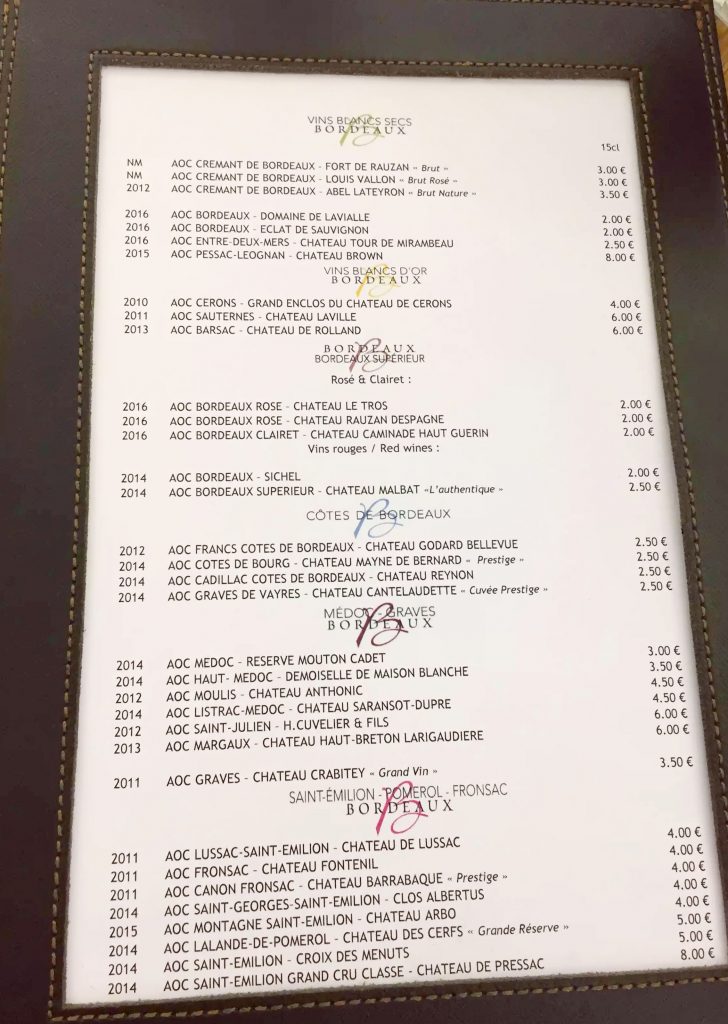 VINS BLANCS SECS
BORDEAUX
15cl
NM AOC CREMANT DE BORDEAUX - FORT DE RAUZAN « Brut » 3.00 €
NM AOC CREMANT DE BORDEAUX - LOUIS VALLON « Brut Rosé » 3.00 €
2012 AOC CREMANT DE BORDEAUX - ABEL LATEYRON « Brut Nature » 3.50 €
2016 AOC BORDEAUX - DOMAINE DE LAVIALLE 2.00 €
2016 AOC BORDEAUX - ECLAT DE SAUVIGNON 2.00 €
2016 AOC ENTRE-DEUX-MERS - CHATEAU TOUR DE MIRAMBEAU 2.50 €
2015 AOC PESSAC-LEOGNAN - CHATEAU BROWN 8.00 €
VINS BLANCS D'OR
BORDEAUX
2010 AOC CERONS - GRAND ENCLOS DU CHATEAU DE CERONS 4.00 €
2011 AOC SAUTERNES - CHATEAU LAVILLE 6.00 €
2013 AOC BARSAC - CHATEAU DE ROLLAND 6.00 €
BORDEAUX
BORDEAUX SUPÉRIEUR
Rosé & Clairet :
2016 AOC BORDEAUX ROSE - CHATEAU LE TROS 2.00 €
2016 AOC BORDEAUX ROSE - CHATEAU RAUZAN DESPAGNE 2.00 €
2016 AOC BORDEAUX CLAIRET - CHATEAU CAMINADE HAUT GUERIN 2.00 €
Vins rouges / Red wines :
2014 AOC BORDEAUX - SICHEL 2.00 €
2014 AOC BORDEAUX SUPERIEUR - CHATEAU MALBAT «L'authentique » 2.50 €
CÔTES DE BORDEAUX
2012 AOC FRANCS COTES DE BORDEAUX - CHATEAU GODARD BELLEVUE 2.50 €
2014 AOC COTES DE BOURG - CHATEAU MAYNE DE BERNARD « Prestige » 2.50 €
2014 AOC CADILLAC COTES DE BORDEAUX - CHATEAU REYNON 2.50 €
2014 AOC GRAVES DE VAYRES - CHATEAU CANTELAUDETTE « Cuvée Prestige » 2.50 €
MÉDOC - GRAVES
BORDEAUX
2014 AOC MEDOC - RESERVE MOUTON CADET 3.00 €
2014 AOC HAUT- MEDOC - DEMOISELLE DE MAISON BLANCHE 3.50 €
2012 AOC MOULIS - CHATEAU ANTHONIC 4.50 €
2014 AOC LISTRAC-MEDOC - CHATEAU SARANSOT-DUPRE 4.50 €
2012 AOC SAINT-JULIEN - H.CUVELIER & FILS 6.00 €
2013 AOC MARGAUX - CHATEAU HAUT-BRETON LARIGAUDIERE 6.00 €
2011 AOC GRAVES - CHATEAU CRABITEY « Grand Vin » 3.50 €
SAINT-ÉMILION - POMEROL - FRONSAC
BORDEAUX
2011 AOC LUSSAC-SAINT-EMILION - CHATEAU DE LUSSAC 4.00 €
2011 AOC FRONSAC - CHATEAU FONTENIL 4.00 €
2011 AOC CANON FRONSAC - CHATEAU BARRABAQUE « Prestige » 4.00 €
2014 AOC SAINT-GEORGES-SAINT-EMILION - CLOS ALBERTUS 4.00 €
2015 AOC MONTAGNE SAINT-EMILION - CHATEAU ARBO 4.00 €
2014 AOC LALANDE-DE-POMEROL - CHATEAU DES CERFS « Grande Réserve » 5.00 €
2014 AOC SAINT-EMILION - CROIX DES MENUTS 5.00 €
2014 AOC SAINT-EMILION GRAND CRU CLASSE - CHATEAU DE PRESSAC 8.00 €